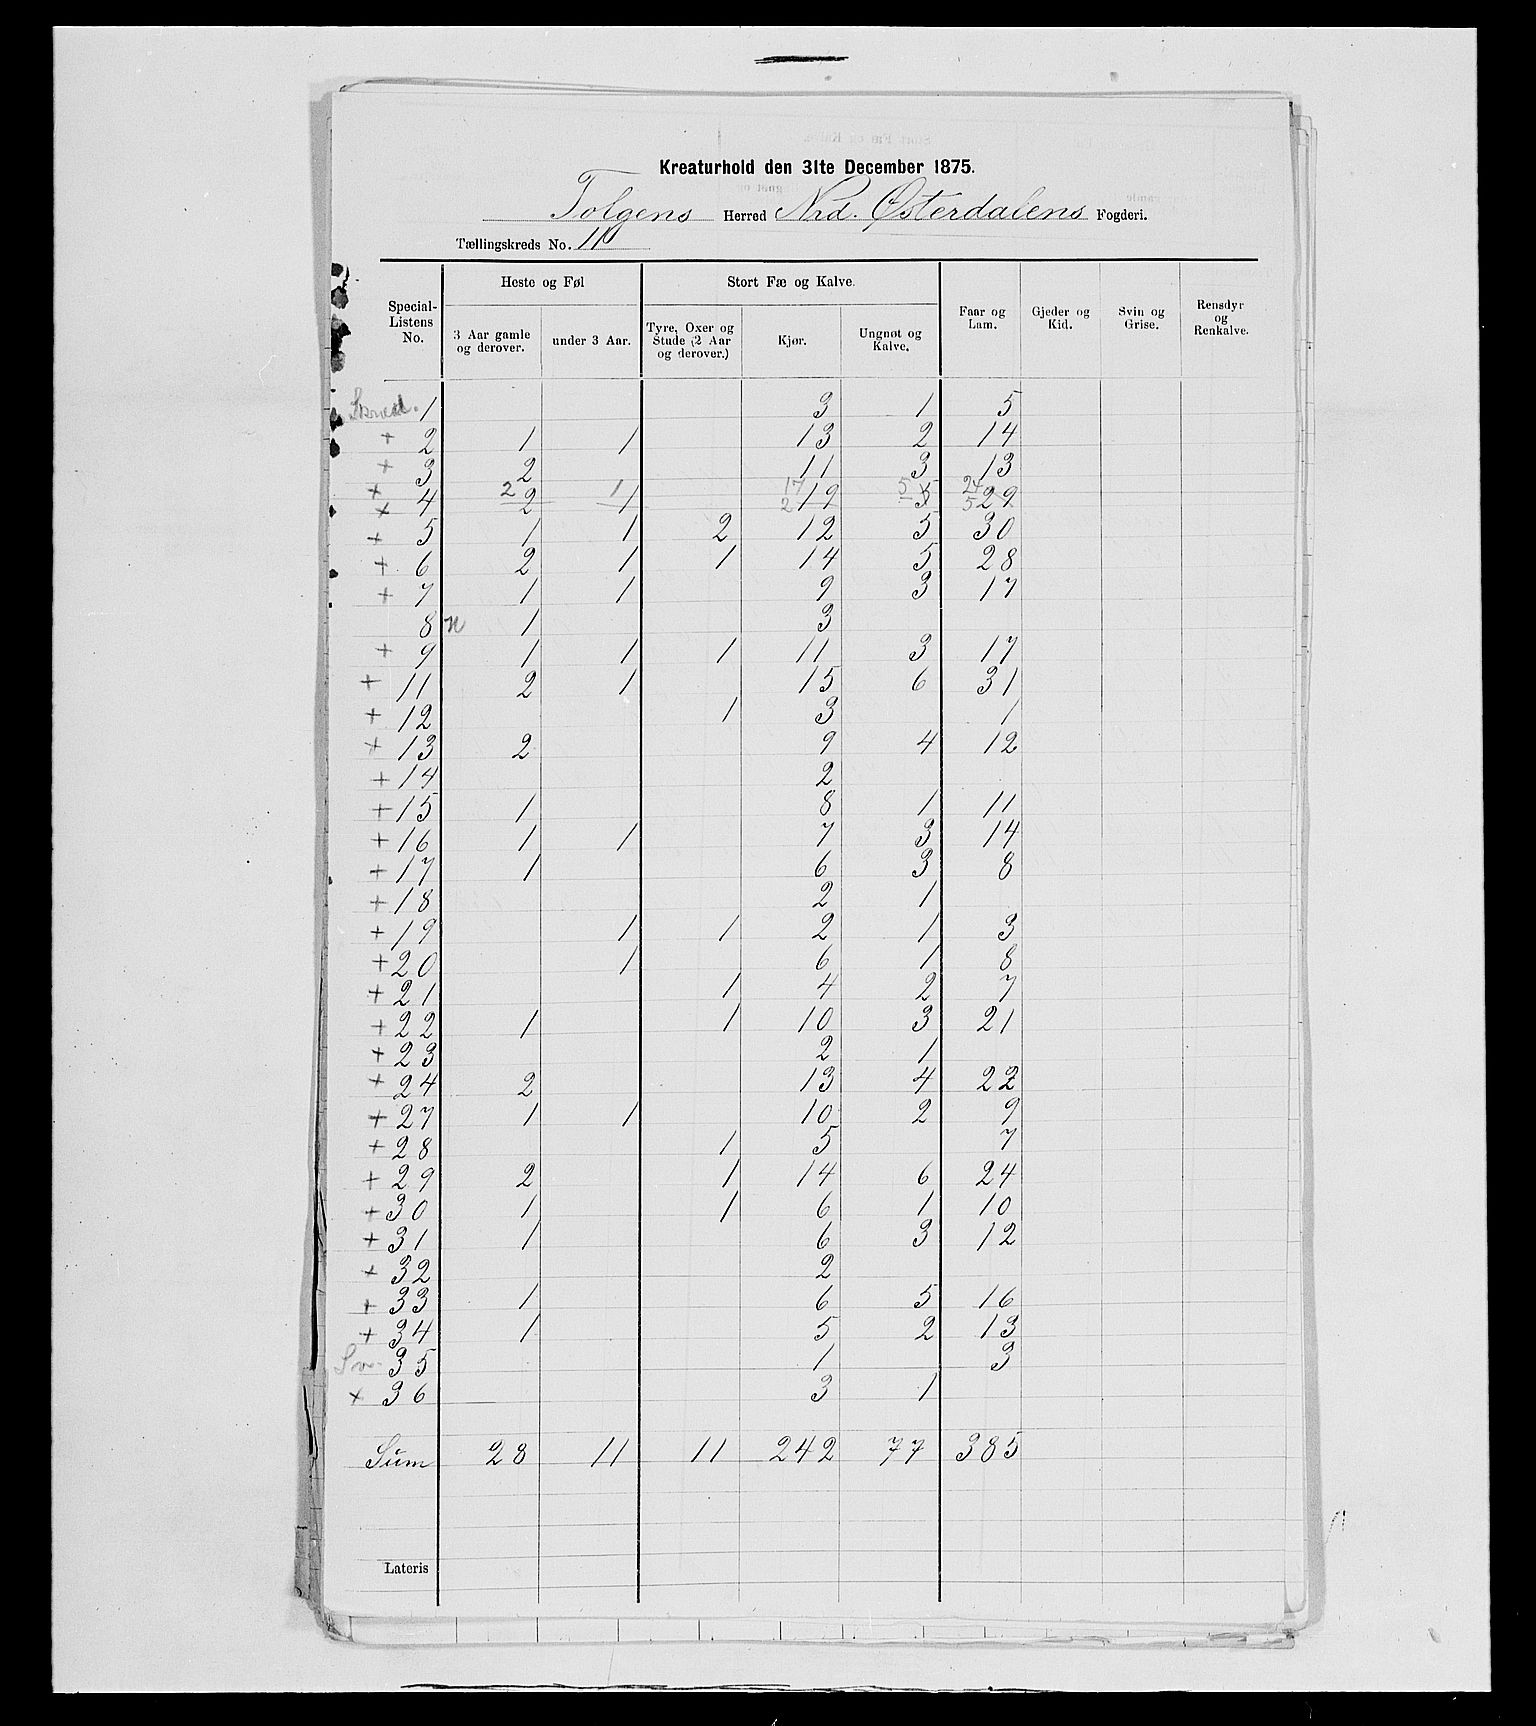 Kreaturhold den 31te December 1875.
Tolgens Herred Nrd. Østerdalens Fogderi.
Tællingskreds No. 11
Special-Listens No. | Heste og Føl | Stort Fæ og Kalve. | Faar og Lam. | Gjeder og Kid. | Svin og Grise. | Rensdyr og Renkalve.
3 Aar gamle og derover. | under 3 Aar. | Tyre, Oxer og Stude (2 Aar og derover.) | Kjør. | Ungnøt og Kalve.
1 | | | | 3 | 1 | 5
+ 2 | 1 | 1 | | 13 | 2 | 14
+ 3 | 2 | | | 11 | 3 | 13
2 | 1 | | 17 | 5 | 24
+ + 4 | 2 | 1 | | 2 19 | 5 | 5 29
+ 5 | 1 | 1 | 2 | 12 | 5 | 30
+ 6 | 2 | 1 | 1 | 14 | 5 | 28
+ 7 | 1 | 1 | | 9 | 3 | 17
8 | n 1 | | | 3
+ 9 | 1 | 1 | 1 | 11 | 3 | 17
+ 11 | 2 | 1 | | 15 | 6 | 31
+ 12 | | | 1 | 3 | | 1
+ 13 | 2 | | | 9 | 4 | 12
+ 14 | | | | 2
+ 15 | 1 | | | 8 | 1 | 11
+ 16 | 1 | 1 | | 7 | 3 | 14
+ 17 | 1 | | | 6 | 3 | 8
+ 18 | | | | 2 | 1
+ 19 | | 1 | 1 | 2 | 1 | 3
+ 20 | | 1 | | 6 | 1 | 8
+ 21 | | | 1 | 4 | 2 | 7
+ 22 | 1 | | 1 | 10 | 3 | 21
+ 23 | | | | 2 | 1
+ 24 | 2 | | | 13 | 4 | 22
+ 27 | 1 | 1 | | 10 | 2 | 9
+ 28 | | | 1 | 5 | | 7
+ 29 | 2 | | 1 | 14 | 6 | 24
+ 30 | 1 | | 1 | 6 | 1 | 10
+ 31 | 1 | | | 6 | 3 | 12
+ 32 | | | | 2
+ 33 | 1 | | | 6 | 5 | 16
+ 34 | 1 | | | 5 | 2 | 13
35 | | | | 1 | | 3
+ 36 | | | | 3 | 1
Sum | 28 | 11 | 11 | 242 | 77 | 385
Lateris